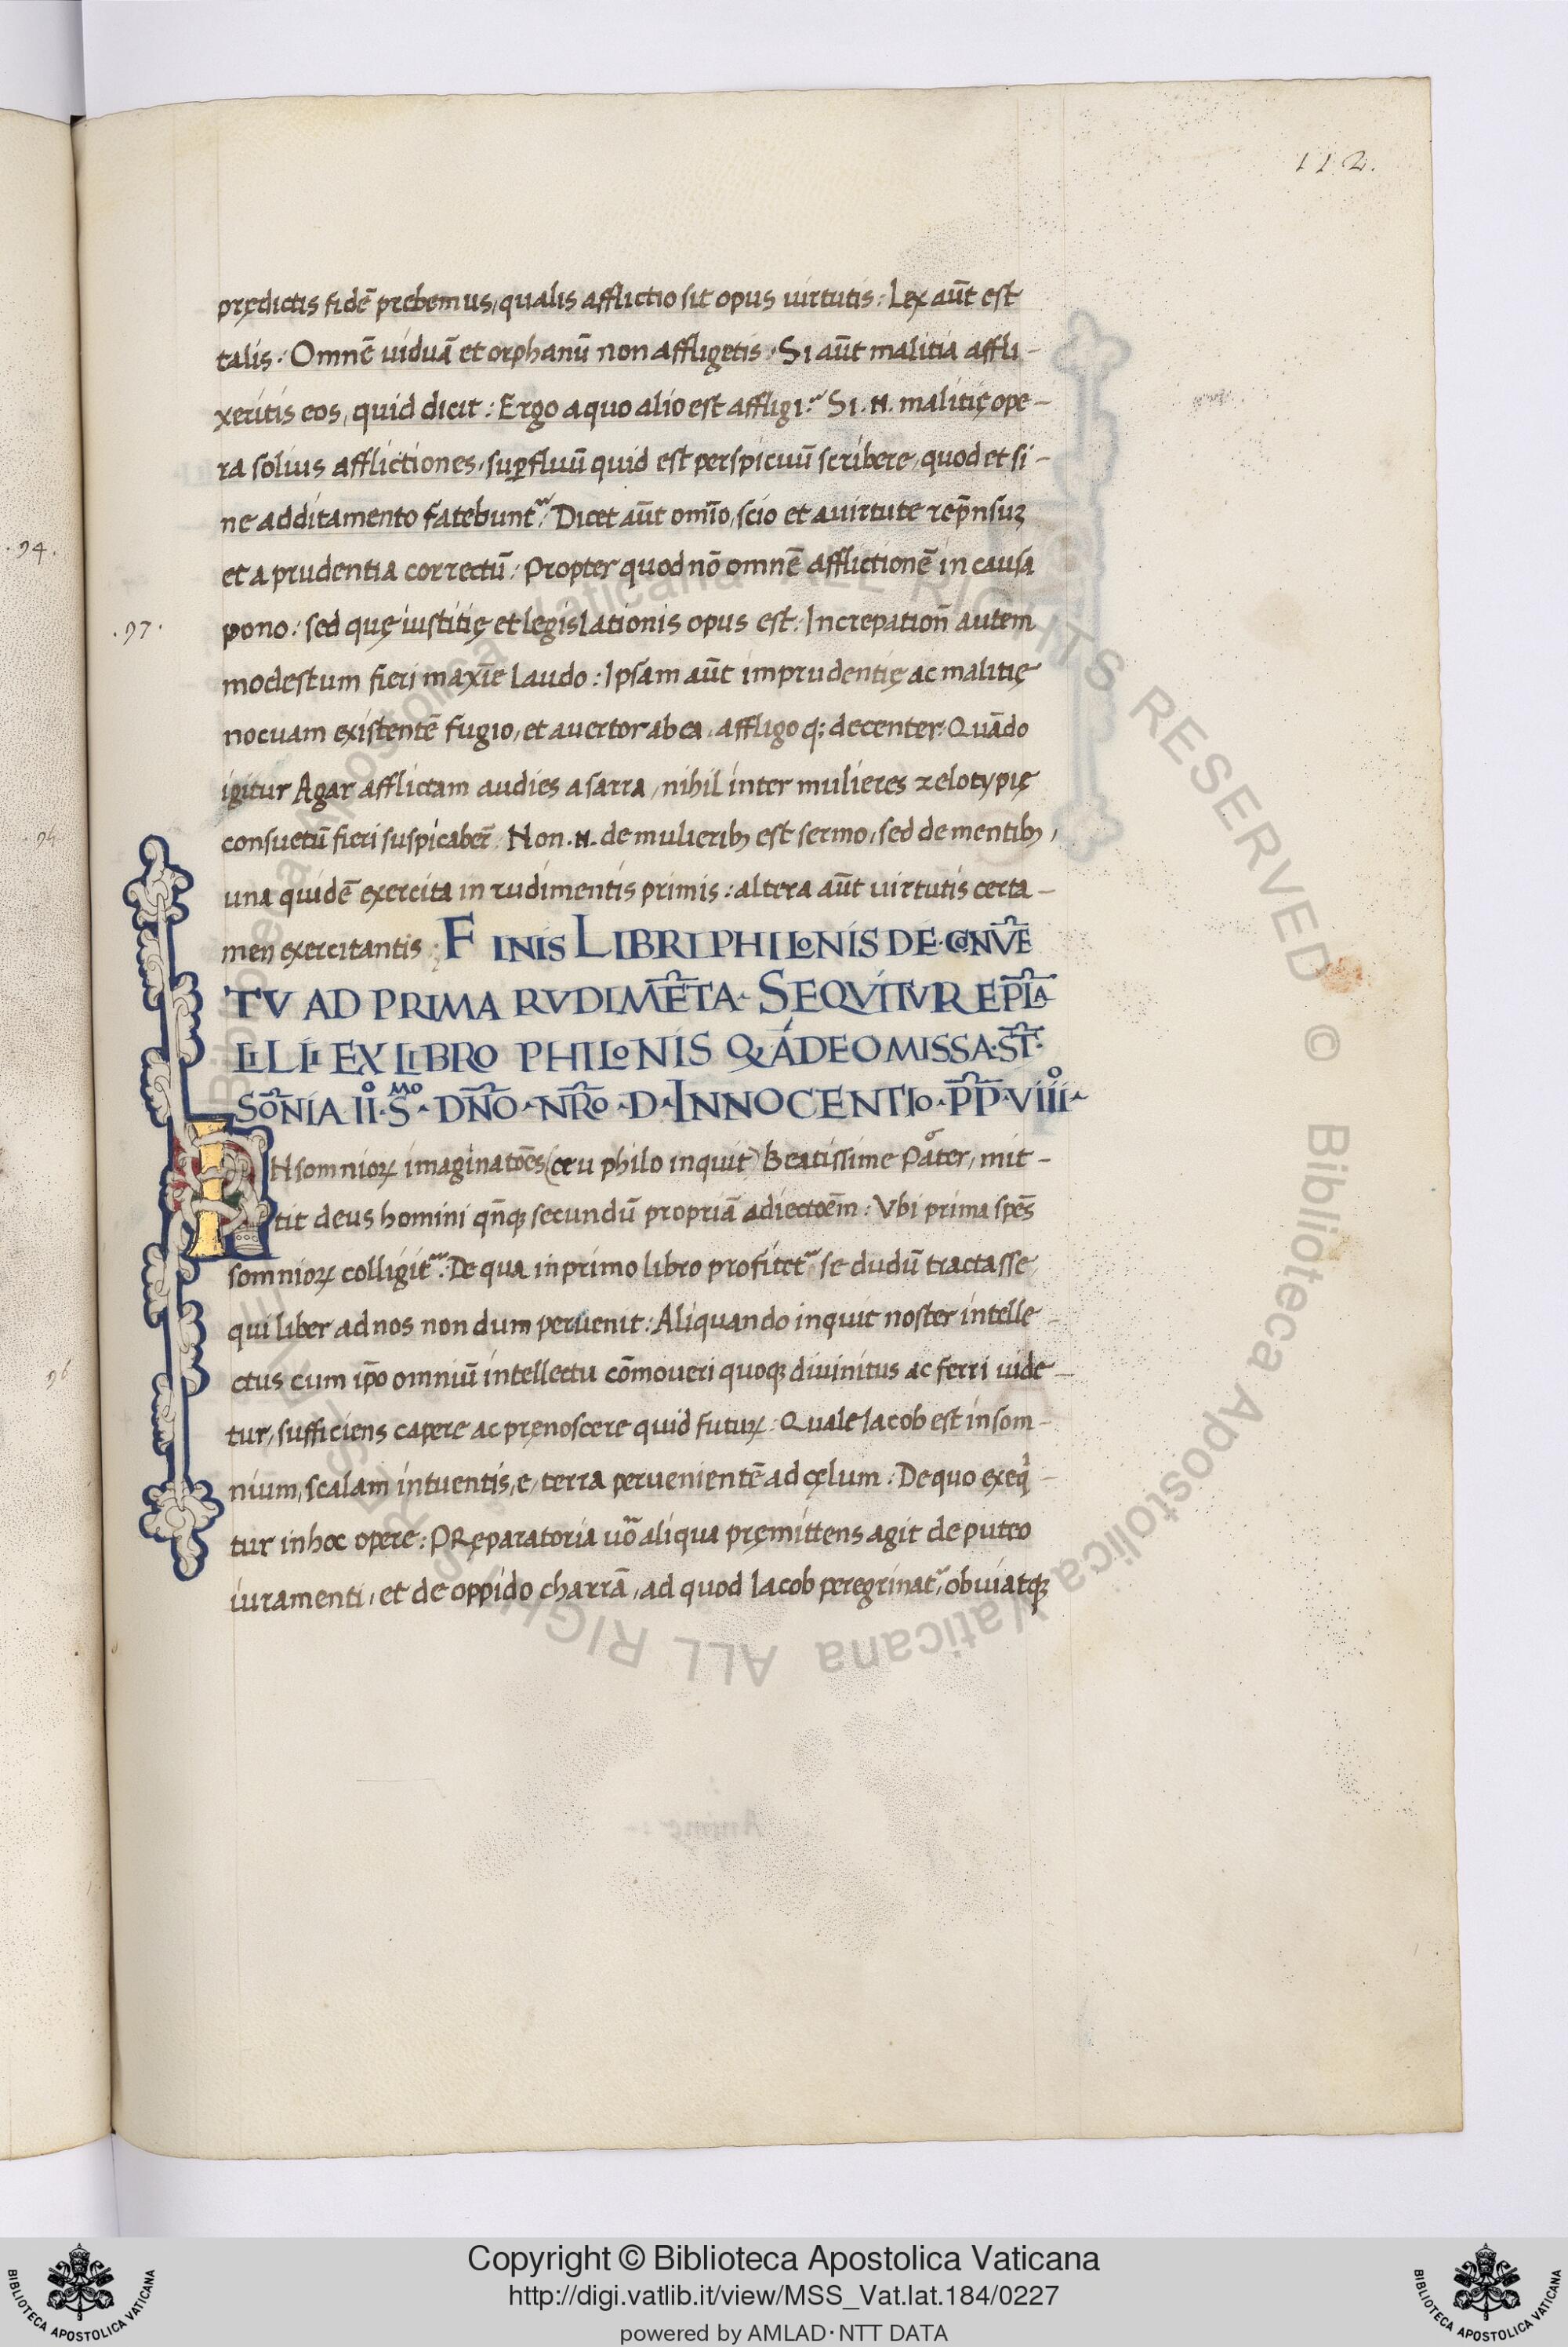 112.
prędictis fidē prebemus, qualis afflictio sit opus uirtutis: Lex aūt est
talis: Omnē uiduā et orphanū non affligetis: Si aūt malitia affli-
xeritis eos, quid dicit: Ergo a quo alio est affligi: Si .N. malitię ope-
ra solius afflictiones, suꝑfluū quid est perspicuū scribere, quod et si-
ne additamento fatebunt᷑: Dicet aūt omīo, scio et a uirtute rep̄nsuꝫ
et a prudentia correctū: Propter quod nō omnē afflictionē in causa
.94.
.97.
pono: sed quę iustitię et legislationis opus est: Increpation̄ autem
modestum fieri maxīe laudo: Ipsam aūt imprudentię ac malitię
nocuam existentē fugio, et auertor ab ea, affligo q; decenter: Quādo
igitur Agar afflictam audies a sarra, nihil inter mulieres zelotypię
consuetū fieri suspicaber̄: Non .N. de mulierib; est sermo, sed de mentib;,
una quidē exercita in rudimentis primis: altera aūt uirtutis certa-
men exercitantis: FINIS LIBRI PHILONIS DE CONVĒ
TV AD PRIMA RVDIMĒTA. SEQVITVR EPL̄A
LILII EX LIBRO PHILONIS Q́ A DEO MISSA. ST̄.
SŌNIA IIº. Sᴹᴼ. DN̄O. NR̄O. D. INNOCENTIO. PP̄. VIIIº
INsomnioꝝ imaginatōes (ceu philo inquit) Beatissime Pater, mit-
tit deus homini qn̄qꝫ secundū propriā adiectōēm: Vbi prima spēs
somnioꝝ colligit᷑: De qua in primo libro profitet᷑ se dudū tractasse,
qui liber ad nos non dum peruenit: Aliquando inquit noster intelle-
ctus cum ip̄o omniū intellectu cōmoueri quoqꝫ diuinitus ac ferri uide-
tur, sufficiens capere ac pręnoscere quid futuꝝ: Quale Iacob est insom-
nium, scalam intuentis, e, terra peruenientē ad cęlum: De quo exeqͥ-
tur in hoc opere: PRęparatoria uō aliqua pręmittens agit de puteo
iuramenti, et de oppido charrā, ad quod Iacob peregrinat᷑, obuiatqꝫ
Biblioteca Apostolica Vaticana ALL RIGHTS RESERVED © Biblioteca Apostolica Vaticana ALL RIGHTS RESERVED
Copyright © Biblioteca Apostolica Vaticana
http://digi.vatlib.it/view/MSS_Vat.lat.184/0227
powered by AMLAD·NTT DATA
BIBLIOTECA APOSTOLICA VATICANA
BIBLIOTECA APOSTOLICA VATICANA